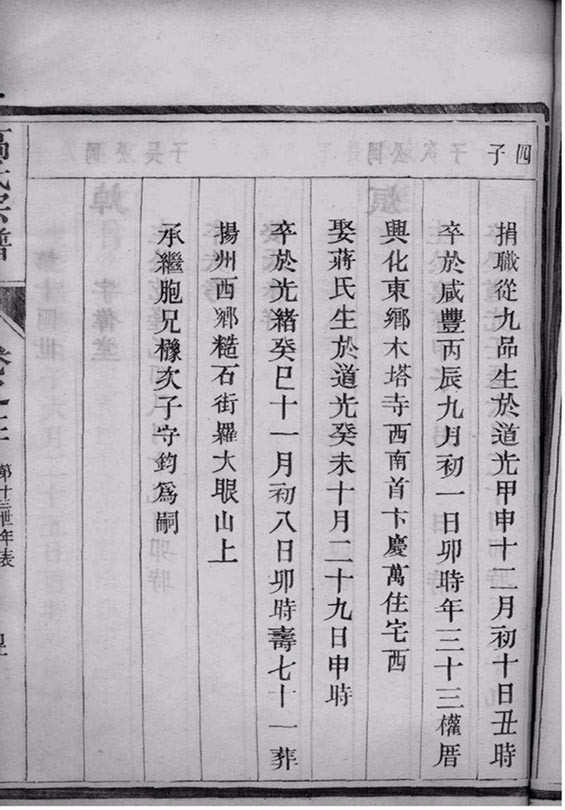 四子
捐職從九品生於道光甲申十二月初十日丑時
卒於咸豐丙辰九月初一日卯時年三十三權厝
興化東鄉木塔寺西南首卞慶萬住宅西
娶蔣氏生於道光癸未十月二十九日申時
卒於光緒癸巳十一月初八日卯時壽七十一葬
揚州西鄉糙石街羅大眼山上
承繼胞兄櫞次子守鈞為嗣
氏宗譜
第十三世年表